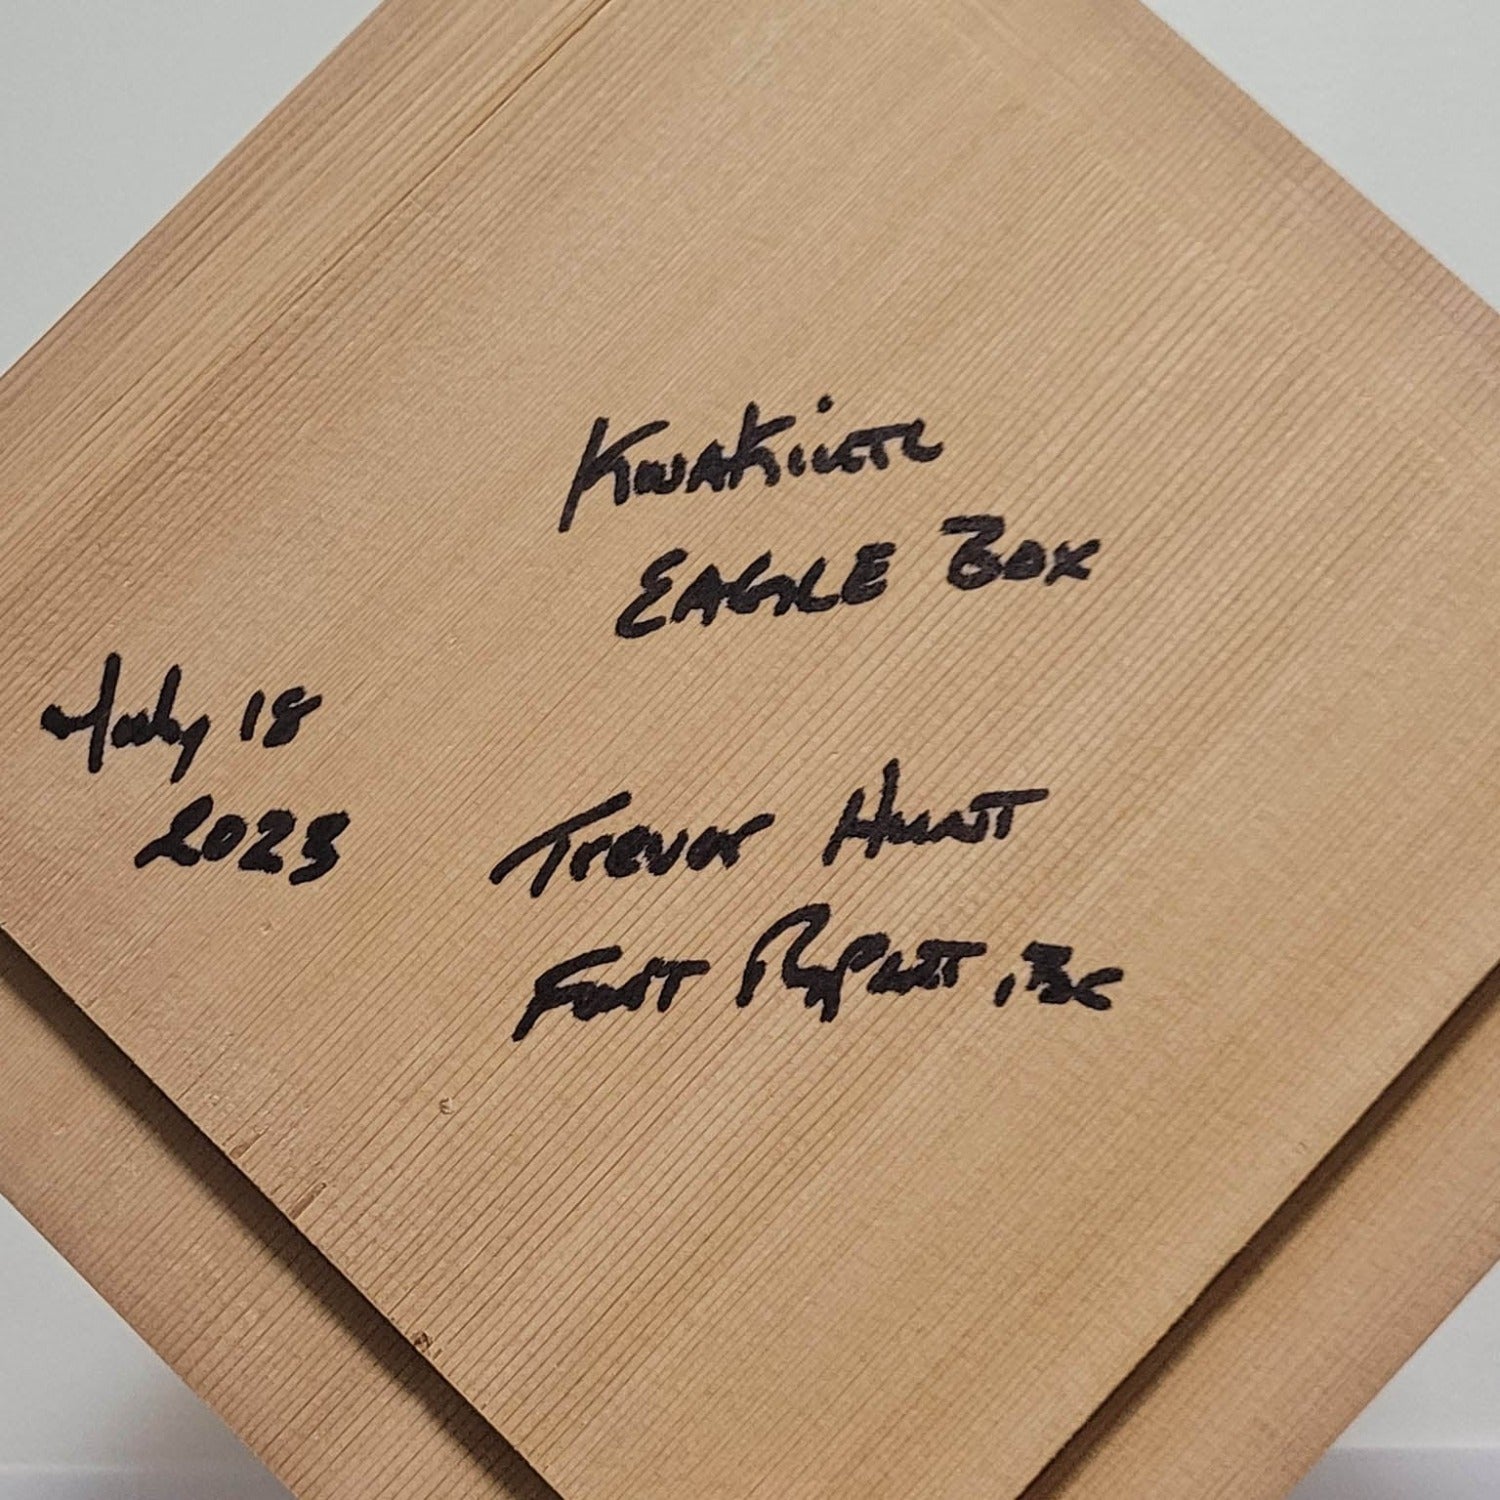 Kwakiutl
EAGLE Box
July 18
2023
Trevor Hunt
Fort Rupert, BC